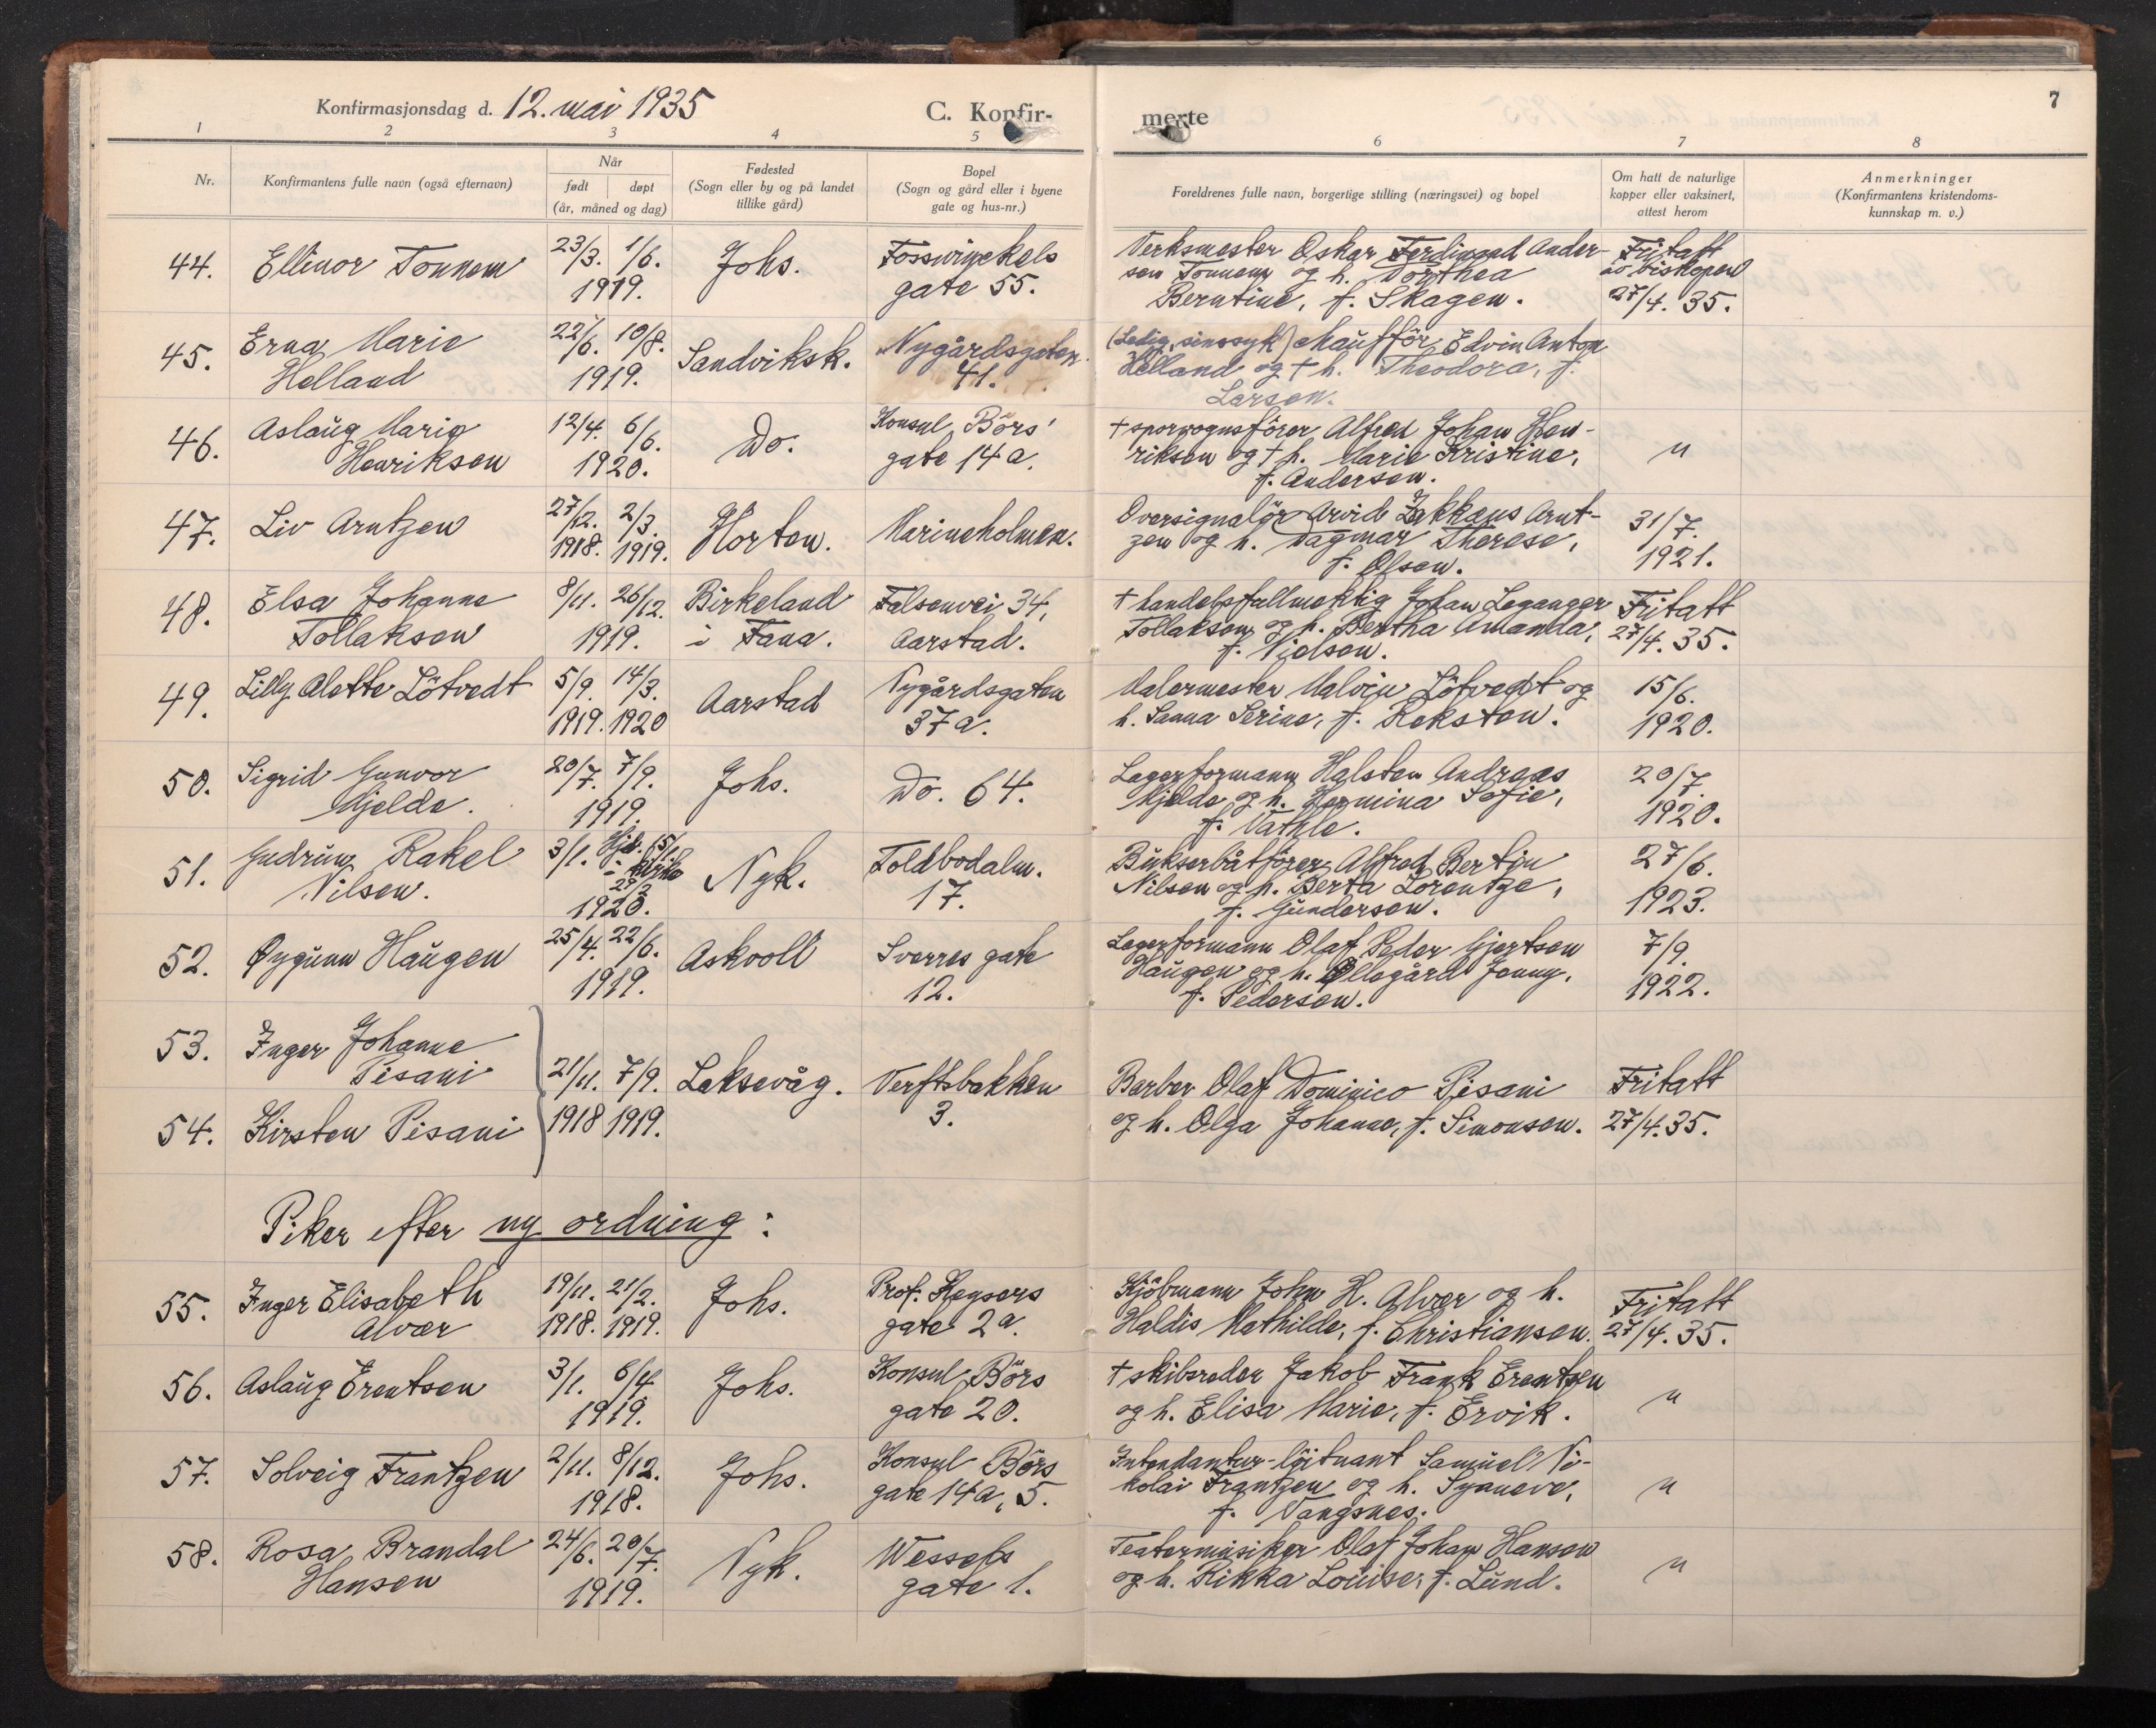 Konfirmasjonsdag d. 12. mai 1935
C. Konfir-
merte
7
1 2 3 4 5 6 7 8
Nr.
Konfirmantens fulle navn (også efternavn)
Når
født døpt
(år, måned og dag)
Fødested
(Sogn eller by og på landet
tillike gård)
Bopel
(Sogn og gård eller i byene
gate og hus-nr.)
Foreldrenes fulle navn, borgerlige stilling (næringsvei) og bopel
Om hatt de naturlige
kopper eller vaksinert,
attest herom
Anmerkninger
(Konfirmantens kristendoms-
kunnskap m. v.)
44. Ellinor Tonnem
23/3. 1/6.
1919.
Johs.
Fosswinckels
gate 55.
Verksmester Oskar Ferdinand Ander-
sen Tonnem og h. Dorthea
Berntine, f. Skagen.
Fritatt
av biskopen
27/4. 35.
45. Erna Marie
Helland
22/6. 10/8.
1919.
Sandviksk.
Nygårdsgaten
41.
(Ledig, sinssyk) chaufför Edvin Anton
Helland og † h. Theodora, f.
Larsen.
46. Aslaug Marie
Henriksen
12/4. 6/6.
1920.
Do.
Konsul Börs'
gate 14a.
† sporvognsförer Alfred Johan Hen-
riksen og † h. Marie Kristine,
f. Andersen.
"
47. Liv Arntzen
27/12. 2/3.
1918. 1919.
Horten.
Marineholmen.
Oversignalör Arvid Zakkæus Arnt-
zen og h. Dagmar Therese,
f. Olsen.
31/7.
1921.
48. Elsa Johanne
Tollaksen
8/11. 26/12.
1919.
Birkeland
i Fana.
Falsenvei 34,
Aarstad.
† handelsfullmektig Johan Leganger
Tollaksen og h. Bertha Amanda,
f. Nielsen.
Fritatt
27/4. 35.
49. Lilly Alette Lötvedt
5/9. 14/3.
1919. 1920
Aarstad
Nygårdsgaten
37a.
Malermester Malvin Lötvedt og
h. Sanna Serine, f. Reksten.
15/6.
1920.
50. Sigrid Gunvor
Mjelde.
20/7. 7/9.
1919.
Johs.
Do. 64.
Lagerformann Halsten Andreas
Mjelde og h. Hermina Sofie,
f. Vathle.
20/7.
1920.
51. Gudrun Rakel
Nilsen.
3/1. Hjd. 15/1
i kirke
29/2
1920.
Nyk.
Toldbodalm.
17.
Bukserbåtförer Alfred Bertin
Nilsen og h. Berta Lorentze,
f. Gundersen.
27/6.
1923.
52. Øygunn Haugen
25/4. 22/6.
1919.
Askvoll
Sverres gate
12.
Lagerformann Olaf Peder Gjertsen
Haugen og h. Ollegård Jenny,
f. Pedersen.
7/9.
1922.
53. Inger Johanne
Pisani
54. Kirsten Pisani
21/11. 7/9.
1918 1919.
Laksevåg.
Verftsbakken
3.
Barber Olaf Dominico Pisani
og h. Olga Johanne, f. Simonsen.
Fritatt
27/4. 35.
Piker efter ny ordning:
55. Inger Elisabeth
Alvær
19/11. 21/2.
1918. 1919.
Johs.
Prof. Keysers
gate 2a.
Kjöbmann John H. Alvær og h.
Haldis Mathilde, f. Christiansen.
Fritatt
27/4. 35.
56. Aslaug Erentsen
3/1. 6/4
1919.
Johs.
Konsul Börs
gate 20.
† skibsreder Jakob Frank Erentsen
og h. Elisa Marie, f. Ervik.
"
57. Solveig Frantzen
2/11. 8/12.
1918.
Johs.
Konsul Börs
gate 14a, 5.
Intendantur-löitnant Samuel Ni-
kolai Frantzen og h. Synneve,
f. Vangsnes.
"
58. Rosa Brandal
Hansen
24/6. 20/7.
1919.
Nyk.
Wessels
gate 1.
Teatermusiker Olaf Johan Hansen
og h. Rikka Louise, f. Lund.
"